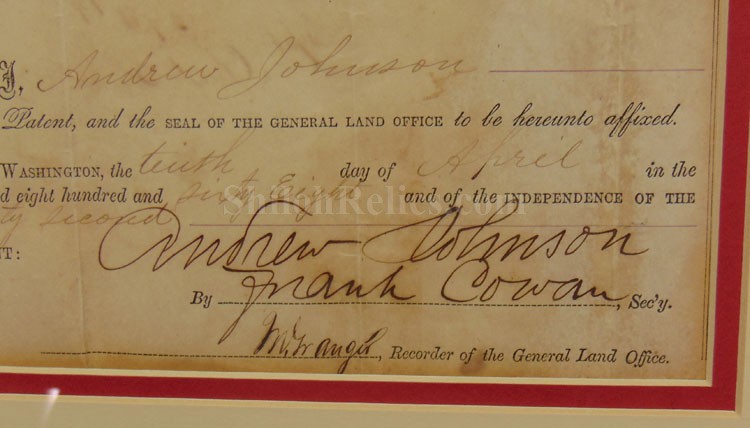 I, Andrew Johnson
Patent, and the SEAL OF THE GENERAL LAND OFFICE to be hereunto affixed.
WASHINGTON, the tenth day of April in the
d eight hundred and sixty Eight and of the INDEPENDENCE OF THE
ty second
ShilohRelics.com
Andrew Johnson
NT:
By Frank Cowan, Sec'y.
, Recorder of the General Land Office.